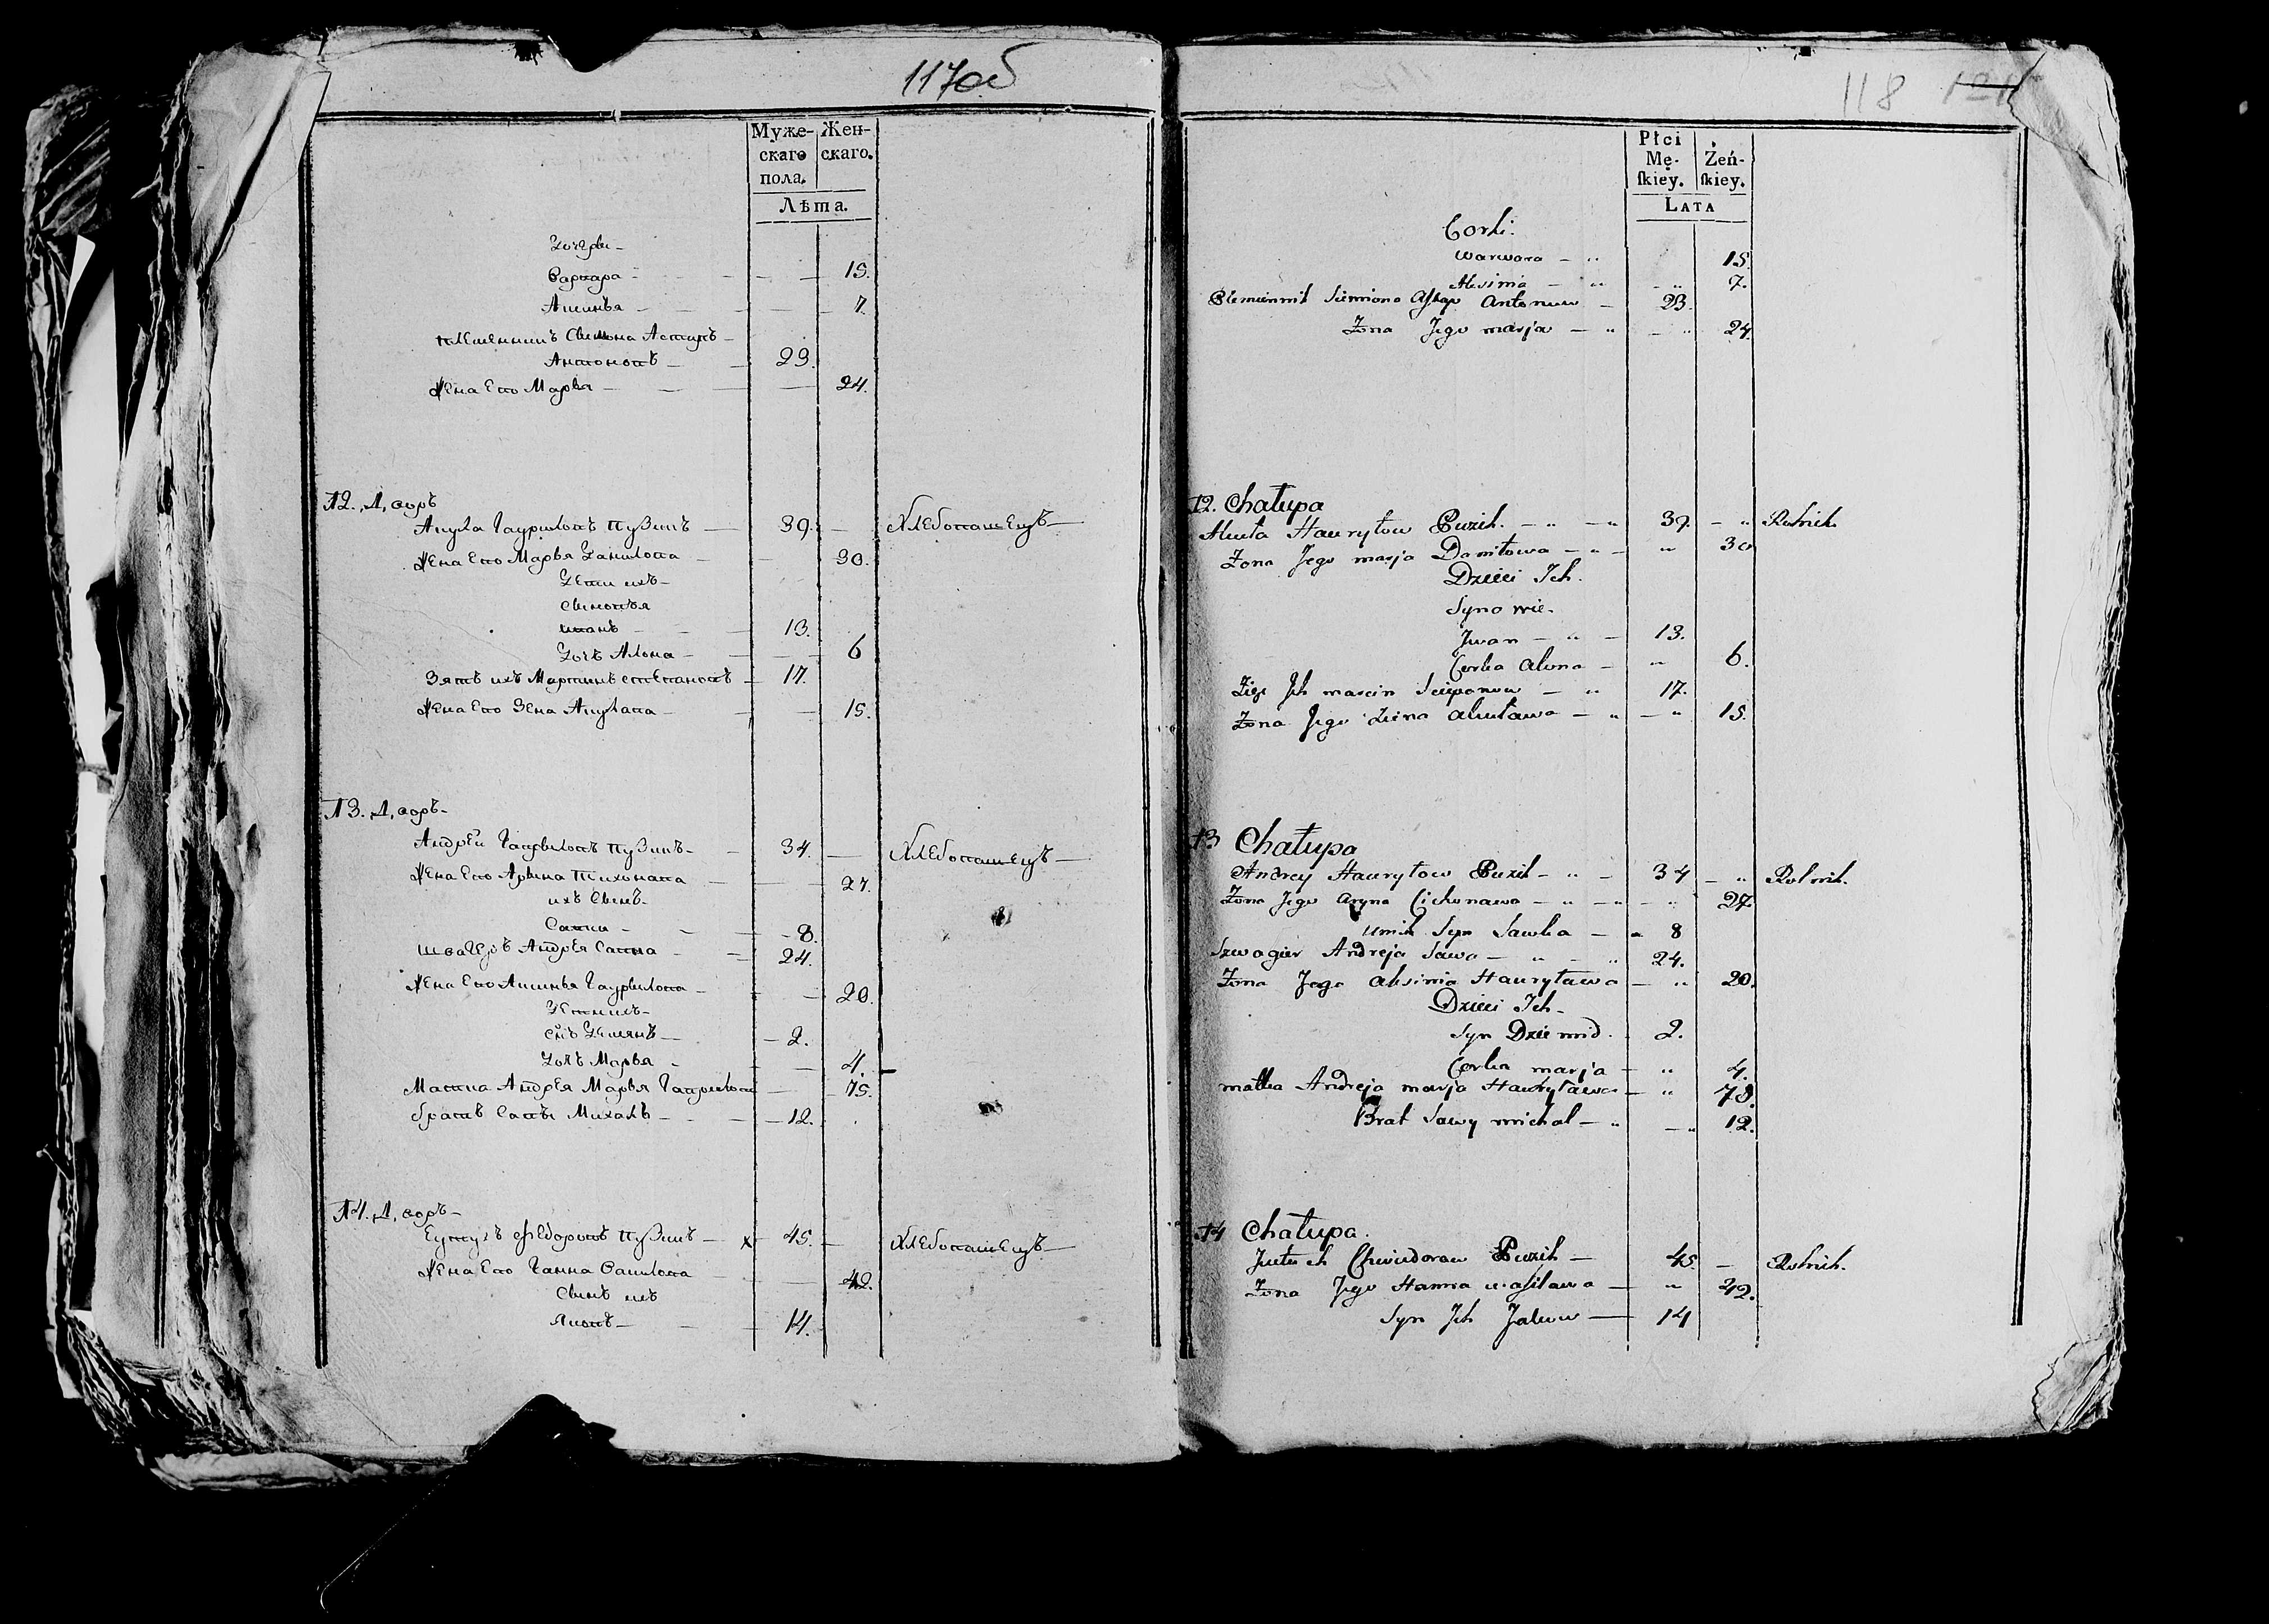 117об
Муже-
скаго
пола.
Жен-
скаго.
Лѣта.
Дочери -
Варвара - 15.
Аксинья - 7.
племенникъ Семиона Астапъ -
Антоновъ - 23.
Жена Его Марья - 24.
12. Дворъ
Акула Гаурыловъ Пузикъ - 39. - Хлебопашецъ -
Жена Его Марья Данилова - 30.
Дети ихъ -
Сыновья
Иванъ - 13.
Дочь Алюна - 6
Зять ихъ Мартинъ Степановъ - 17.
Жена Его Зена Акулава - 15.
13. Дворъ -
Андрей Гаврыловъ Пузикъ - 34. - Хлебопашецъ -
Жена Его Арына Тихонава - 27.
ихъ Сынъ -
Савка - 8.
Швагеръ Андрея Савва - 24.
Жена Его Аксинья Гаурылова - 20.
Дети ихъ -
Снъ Демянъ - 2.
Дочь Марья - 4.
Матка Андрея Марья Гаврылова - 75.
братъ Савы Михалъ - 12.
14. Дворъ -
Еутухъ Федоровъ Пузикъ - x 45. - Хлебопашецъ -
Жена Его Ганна Василова - 42.
Сынъ ихъ
Яковъ - 14.
118 121
Płci
Mę-
ſkiey.
Żeń-
ſkiey.
LATA
Corki.
Warwara - „ 15.
Aksinia - „ - „ 7.
Plemiennik Siemiona Aſtap Antonow - 23.
Żona Jego marja - „ - „ 24
12. Chałupa
Akuła Haurylow Puzik. - „ - „ 39. - „ Rolnik.
Żona Jego marja Daniłowa - „ - „ 30
Dzieci Ich.
Synowie.
Jwan - „ - 13.
Corka Alona - „ 6.
Zięć Jch marcin Sciepanow - „ 17.
Żona Jego Ziena Akuławo - „ - „ 15.
13 Chałupa
Andrey Hauryłow Puzik - „ - 34 - „ Rolnik.
Żona Jego Aryna Cichonawa - „ - „ - „ 27.
Umik Syn Sawka - „ 8
Szwagier Andreja Sawa - „ - „ 24.
Żona Jego Aksinia Hauryława - „ 20.
Dzieci Ich -
Syn Dziemid. 2.
Corka marja - „ 4.
matka Andreja marja Hauryława - „ 75.
Brat Sawy michal - „ - „ 12.
14 Chałupa.
Jutuch Chwiedoraw Puzik - 45. - Rolnik.
Żona Jego Hanna waſilawa - „ 42.
Syn Jch Jakuw - 14